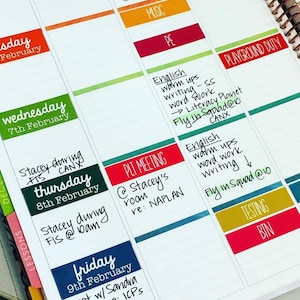 sday
February
MUSIC
PE
PLAYGROUND DUTY
wednesday
7th February
English
warm ups
writing - SS
word work
→ Literacy Planet
Fly in Squad @10
CANX
Stacey during
FIS CANX
thursday
8th February
PLT MEETING
@ Stacey's
room
re: NAPLAN
English
warm ups
word work
writing
Fly in Squad @10
Stacey during
FIS @ 10am
TESTING
BTN
LESSONS
friday
9th February
w/ Sandra
ICPs